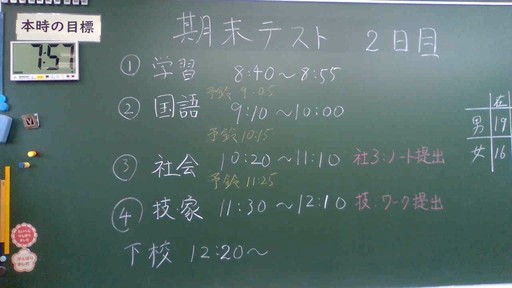 本時の目標
7:57
期末テスト 2日目
① 学習 8:40～8:55
予鈴 9:05
② 国語 9:10～10:00
予鈴 10:15
③ 社会 10:20～11:10 社3:ノート提出
予鈴 11:25
④ 技・家 11:30～12:10 技:ワーク提出
下校 12:20～
在
男 19
女 16